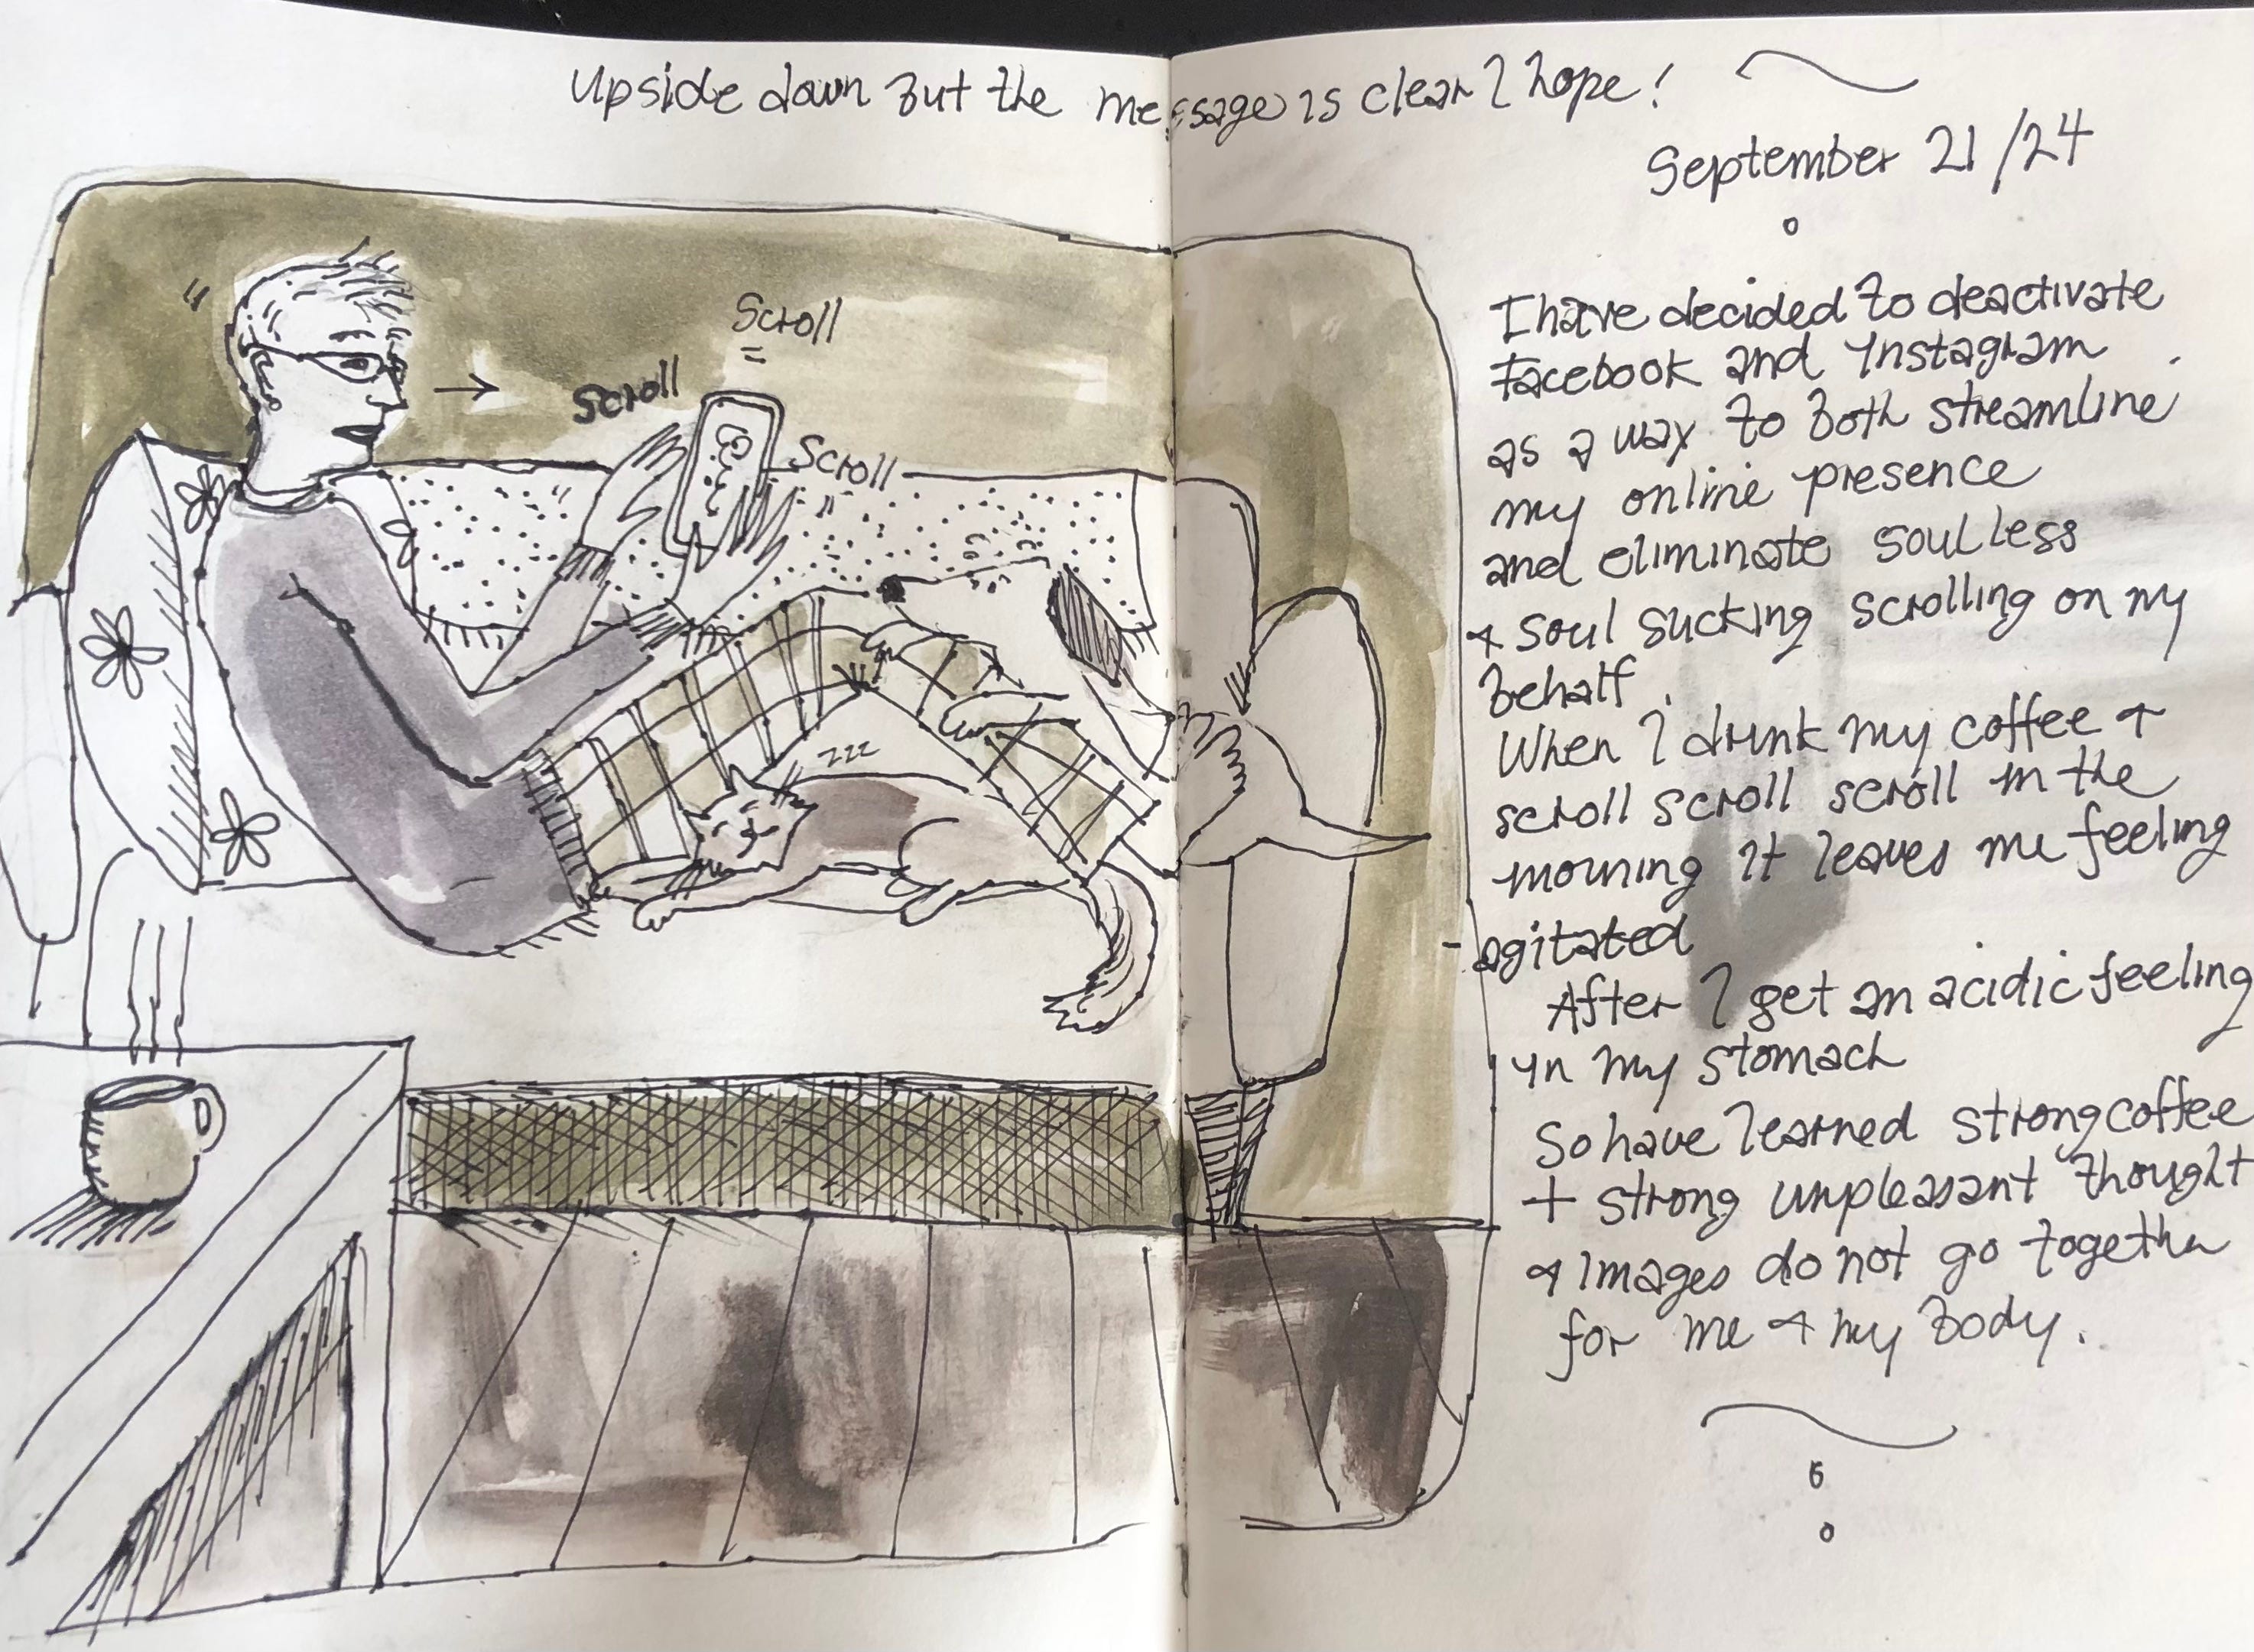 Upside down but the message is clear I hope!
September 21/24
Scroll
Scroll
Scroll
zzz
I have decided to deactivate
Facebook and Instagram
as a way to both streamline
my online presence
and eliminate soulless
& soul sucking scrolling on my
behalf.
When I drink my coffee &
scroll scroll scroll in the
morning it leaves me feeling
- agitated
After I get an acidic feeling
in my stomach
So have learned strong coffee
+ strong unpleasant thought
& images do not go together
for me & my body.